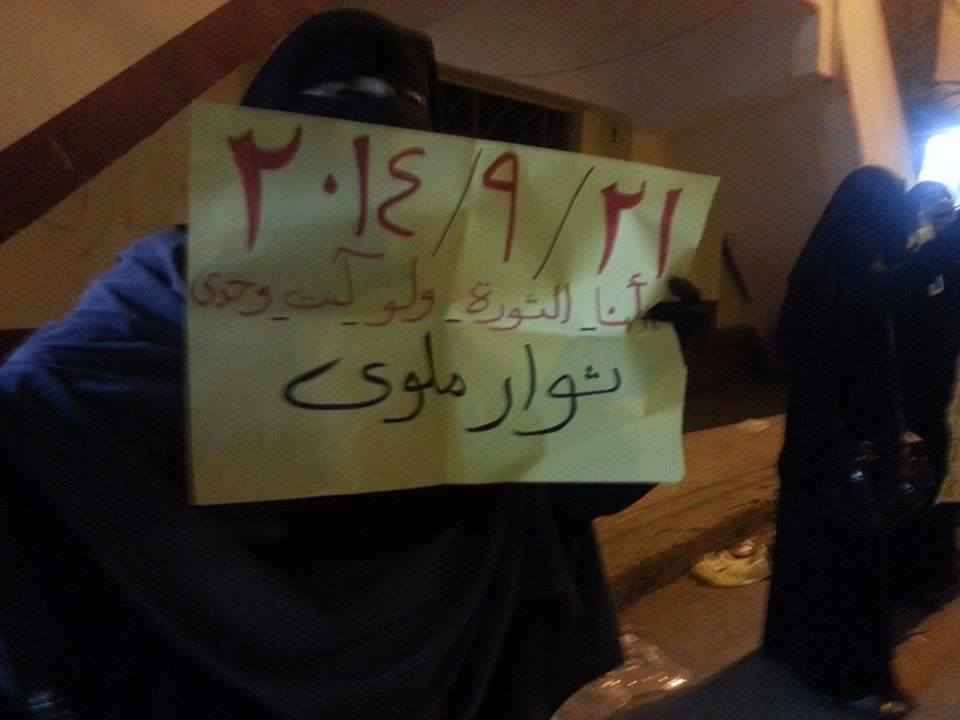 ٢١/٩/٢٠١٤
#أنا_الثورة_ولو_كنت_وحدى
ثوار ملوى